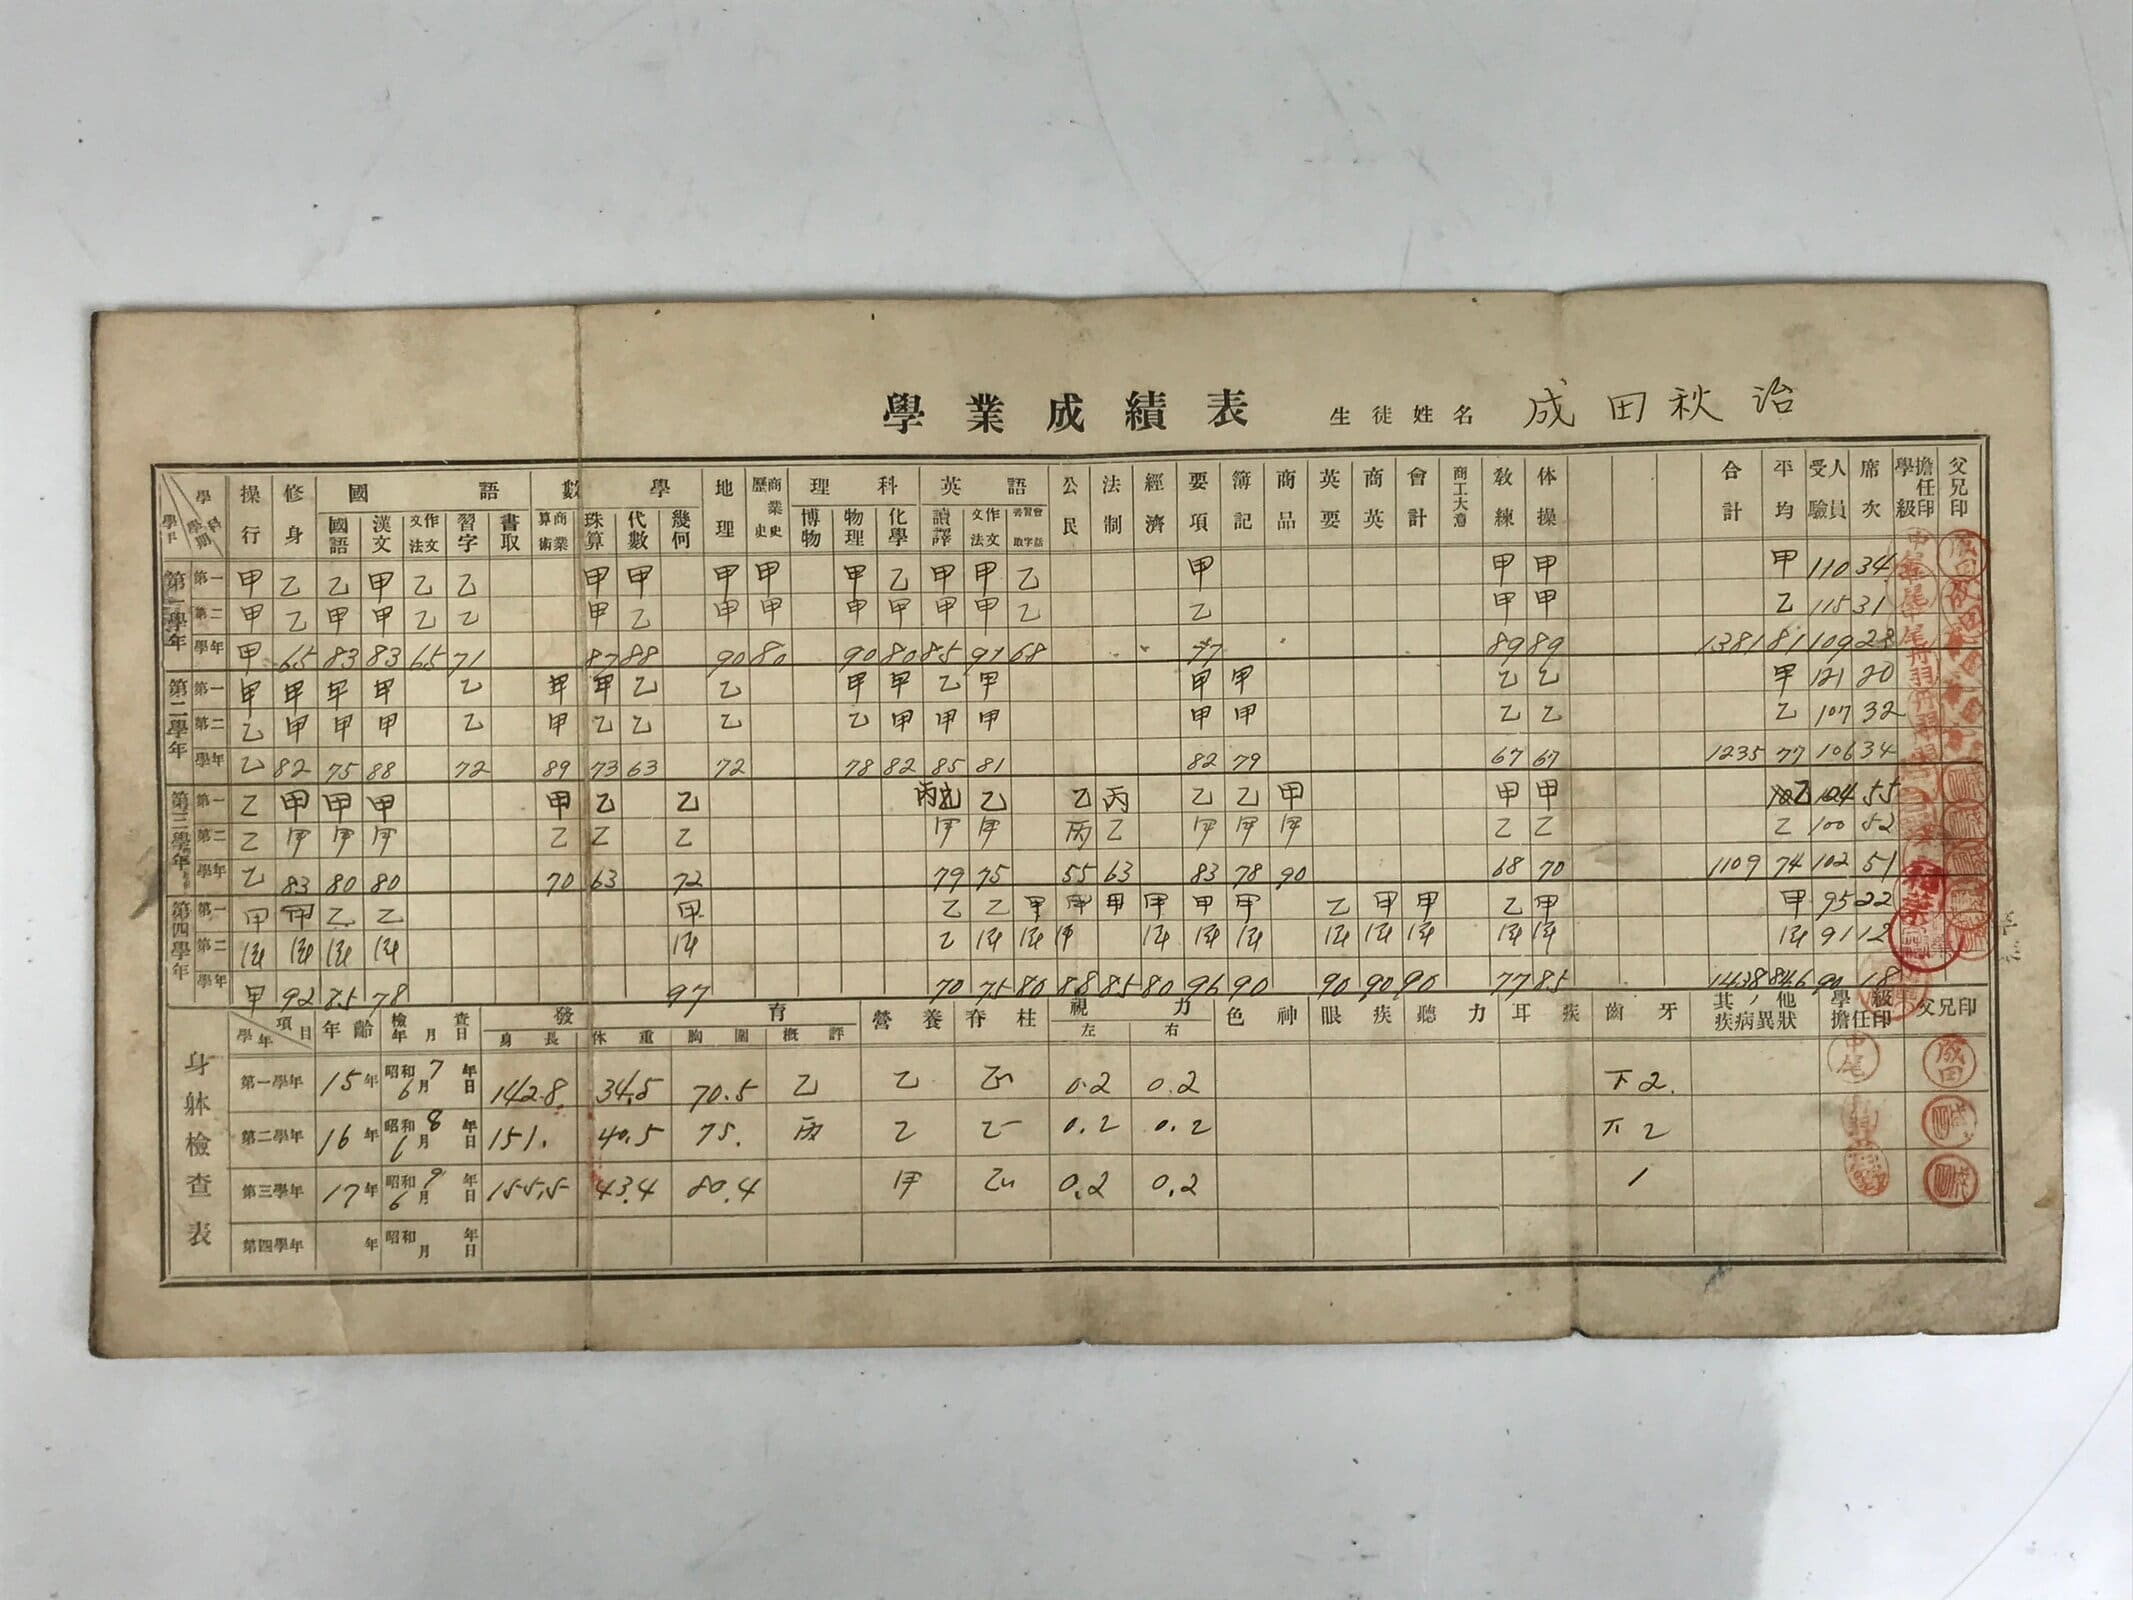 學業成績表 生徒姓名 成田秋治
學科 學期 學年 操行 修身 國語 數學 地理 歷史 商業史 理科 英語 公民 法制 經濟 要項 簿記 商品 英要 商英 會計 商工大意 教練 体操 合計 平均 受驗人員 席次 學級擔任印 父兄印
國語 漢文 作文文法 習字 書取 商業算術 珠算 代數 幾何 博物 物理 化學 讀譯 作文文法
第一學年 第一 甲 乙 乙 甲 乙 乙 甲 甲 甲 甲 甲 乙 甲 甲 乙 甲 甲 甲 甲 110 34
第二 甲 乙 甲 甲 乙 乙 甲 乙 甲 甲 甲 甲 甲 甲 乙 乙 甲 甲 乙 115 31
學年 甲 65 83 83 65 71 87 88 90 80 90 80 85 91 68 77 89 89 1381 81 109 28
第二學年 第一 甲 甲 甲 甲 乙 甲 甲 乙 乙 甲 甲 乙 甲 甲 甲 乙 乙 甲 121 20
第二 乙 甲 甲 甲 乙 甲 乙 乙 乙 乙 甲 甲 甲 甲 甲 乙 乙 乙 107 32
學年 乙 82 75 88 72 89 73 63 72 78 82 85 81 82 79 67 67 1235 77 106 34
第三學年 第一 乙 甲 甲 甲 甲 乙 乙 丙 乙 乙 丙 乙 乙 甲 甲 甲 乙 104 55
第二 乙 甲 甲 甲 乙 乙 乙 甲 甲 丙 乙 甲 甲 甲 乙 乙 乙 100 52
學年 乙 83 80 80 70 63 72 79 75 55 63 83 78 90 68 70 1109 74 102 51
第四學年 第一 甲 甲 乙 乙 甲 乙 乙 甲 甲 甲 甲 甲 甲 乙 甲 甲 乙 甲 甲 95 22
第二 乙 91 12
學年 甲 92 85 78 97 70 75 80 88 85 80 96 90 90 90 90 77 85 1438 84.6 90 18
身躰檢查表
項目 學年 年齡 檢查年月日 發育 營養 脊柱 視力 色神 眼疾 聽力 耳疾 齒牙 其ノ他疾病異狀 學級擔任印 父兄印
身長 体重 胸圍 概評 左 右
第一學年 15年 昭和7年6月日 142.8. 34.5 70.5 乙 乙 0.2 0.2 下2. 中尾 成田
第二學年 16年 昭和8年6月日 151. 40.5 75. 丙 乙 0.2 0.2 下2
第三學年 17年 昭和9年6月日 155.5 43.4 80.4 甲 0.2 0.2 1
第四學年 年 昭和年月日